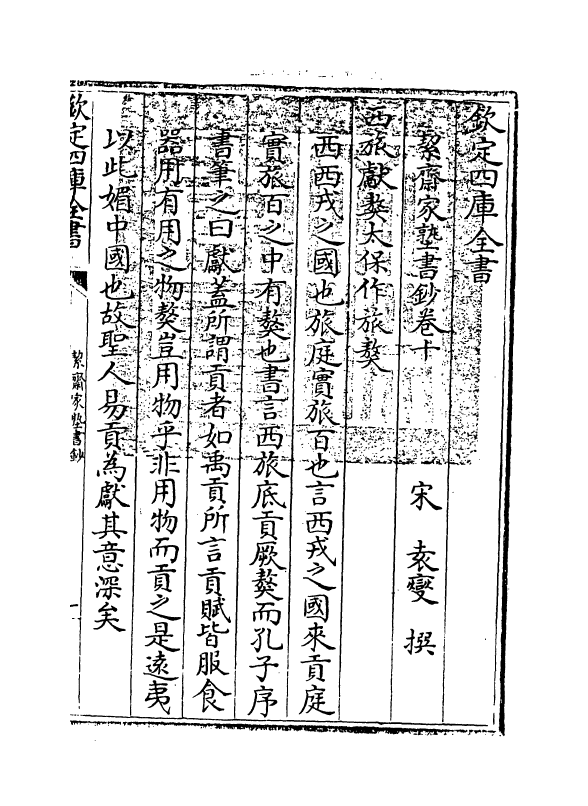 欽定四庫全書
絜齋家塾書鈔卷十
宋 袁燮 撰
西旅獻獒太保作旅獒
西西戎之國也旅庭實旅百也言西戎之國來貢庭
實旅百之中有獒也書言西旅底貢厥獒而孔子序
書筆之曰獻蓋所謂貢者如禹貢所言貢賦皆服食
器用有用之物獒豈用物乎非用物而貢之是遠夷
以此媚中國也故聖人易貢為獻其意深矣
欽定四庫全書
絜齋家塾書鈔
一